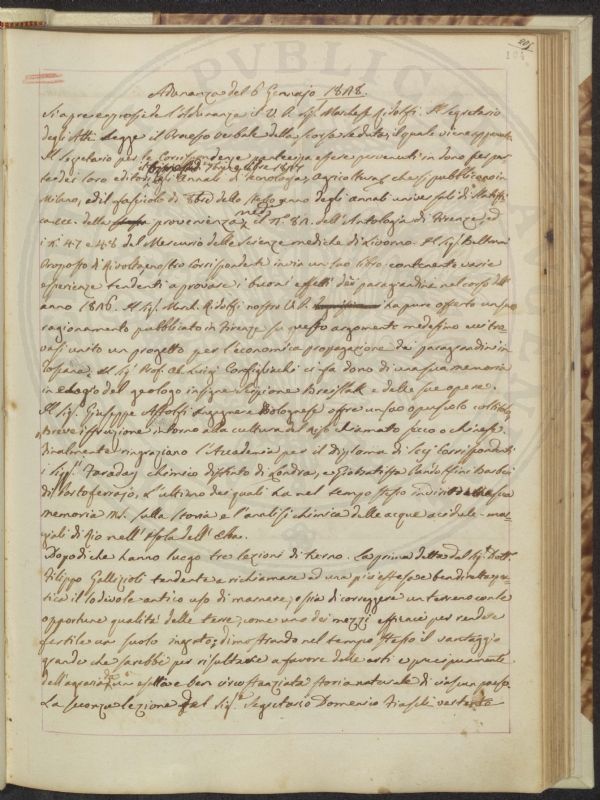 201
104
Adunanza del 6 Gennajo 1828.
Si apre e presiede l'adunanza il V. P. Sig. March.e Ridolfi. Il Segretario
degli Atti legge il Processo Verbale della scorsa seduta, il quale viene approvato.
Il Segretario per le Corrispondenze partecipa essere pervenuti in dono per par
te dei loro editori gli Annali di Tecnologia, Agricoltura che si pubblicano in
Milano, ed il fascicolo di 8bre dello stesso anno degli annali universali di
della provenienza, il N. 82. dell'Antologia di Firenze ed
i N.i 47 e 48 del Mercurio delle Scienze mediche di Livorno. Il Sig. Beltrami
Proposto di Rivolta nostro Corrispondente invia un suo libro contenente varie
esperienze tendenti a provare i buoni effetti dei paragrandini nel corso dell'
anno 1826. Il Sig. March. Ridolfi nostro V. P. ha pure offerto un suo
ragionamento pubblicato in Firenze su questo argomento medesimo cui tro
vasi unito un progetto per l'economica propagazione dei paragrandini in
Toscana. Il Sig. Prof. Ab. Luigi Configliachi ci fa dono di una sua memoria
in elogio del geologo insigne Scipione Breislak e delle sue opere.
Il Sig. Giuseppe Astolfi Ingegnere Bolognese offre un suo opuscolo col titolo
Breve istruzione intorno alla cultura del Riso chiamato secco o chinese.
Finalmente ringraziano l'Accademia per il diploma di Socj Corrispondenti
i Sigg.i Faraday chimico distinto di Londra, e Giobatista Candolfini Barberi
di Portoferrajo, l'ultimo dei quali ha nel tempo stesso inviato una sua
memoria MS. sulla storia e l'analisi chimica delle acque acidule-mar
ziali di Rio nell'Isola dell'Elba.
Dopo di che hanno luogo tre lezioni di turno. La prima detta dal Sig. Dott.
Filippo Gallizioli tendente a richiamare ad una più estesa e ben diretta pra
tica il lodevole antico uso di marnare, ossia di correggere un terreno con le
opportune qualità delle terre, come uno dei mezzi efficaci per rendere
fertile un suolo ingrato; dimostrando nel tempo stesso il vantaggio
grande che sarebbe per risultare a favore delle arti e precipuamente
dell'agraria da una esatta e ben circostanziata storia naturale di ciascun paese.
La seconda lezione del Sig.e Segretario Domenico Fiaschi vertente